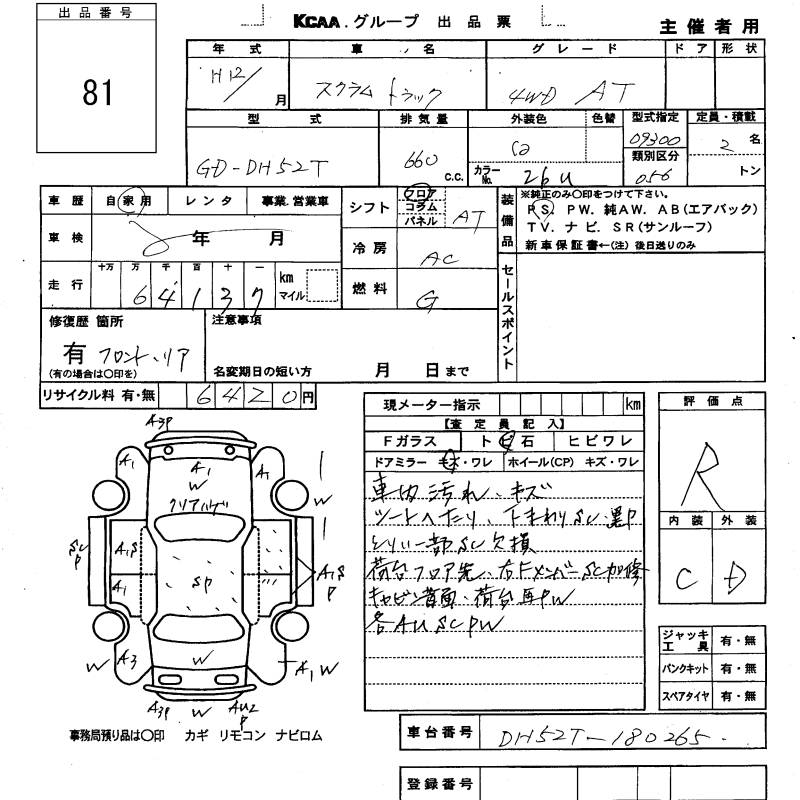 出品番号
81
KCAA.グループ 出品票
主催者用
年式 車名 グレード ドア 形状
H12/ 月 スクラム トラック 4WD AT
型式 排気量 外装色 色替 型式指定 定員・積載
GD-DH52T 660 c.c. カラーNo. 26U 09300 類別区分 056 2 名 トン
車歴 自家用 レンタ 事業.営業車
車検 年 月
走行 十万 万 千 百 十 一 km マイル
6 4 1 3 7
シフト フロア コラム パネル AT
冷房 AC
燃料 G
装備品
※純正のみ〇印をつけて下さい。
PS. PW. 純AW. AB(エアバック)
TV. ナビ. SR(サンルーフ)
新車保証書←(注) 後日送りのみ
セールスポイント
修復歴 箇所
有 フロント、リア
(有の場合は〇印を)
注意事項
名変期日の短い方 月 日まで
リサイクル料 有・無 6420円
現メーター指示 km
【査定員記入】
Fガラス トビ石 ヒビワレ
ドアミラー キズ・ワレ ホイール(CP) キズ・ワレ
車内汚れ、キズ
シートヘたり、下まわりSU
一部SU欠損
荷台フロア先、右FメンバーSU加修
キャビン背面・荷台再PW
各AUSCPW
評価点
R
内装 外装
C D
ジャッキ工具 有・無
パンクキット 有・無
スペアタイヤ 有・無
A3P
A1 A1 A1
W W
クリアハゲ
SU P A1S A1 SP A1S P
W A3 W A1 W
A3P W AU2 P
事務局預り品は〇印 カギ リモコン ナビロム
車台番号 DH52T-180265
登録番号